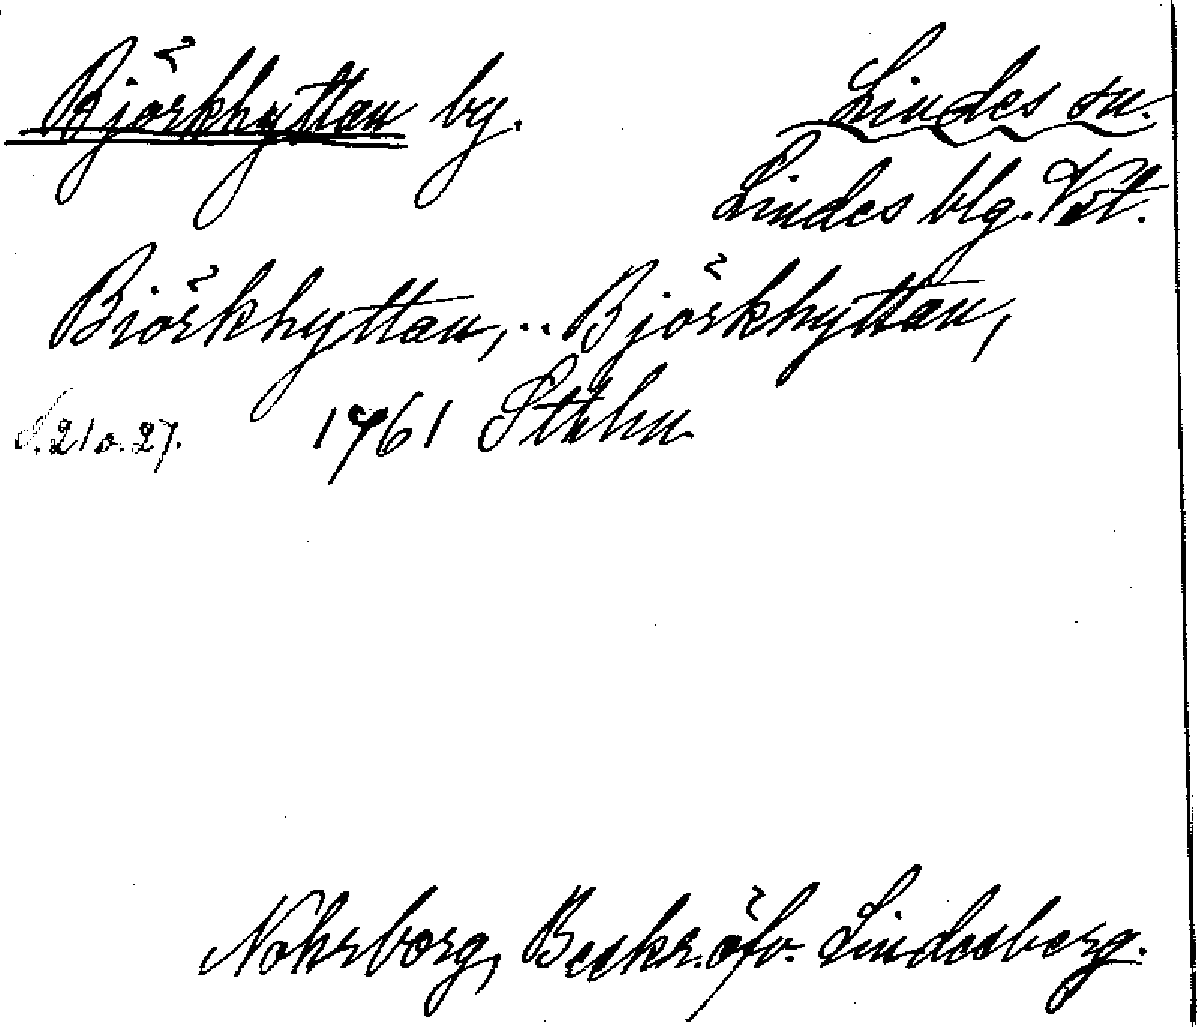 Björkhyttan by. Lindes sn.
Lindes blg. Vstl.
Biörkhyttan, .. Björkhyttan,
S. 21 o. 27. 1761 Sthlm
Nohrborg, Beskr. öfv. Lindesberg.